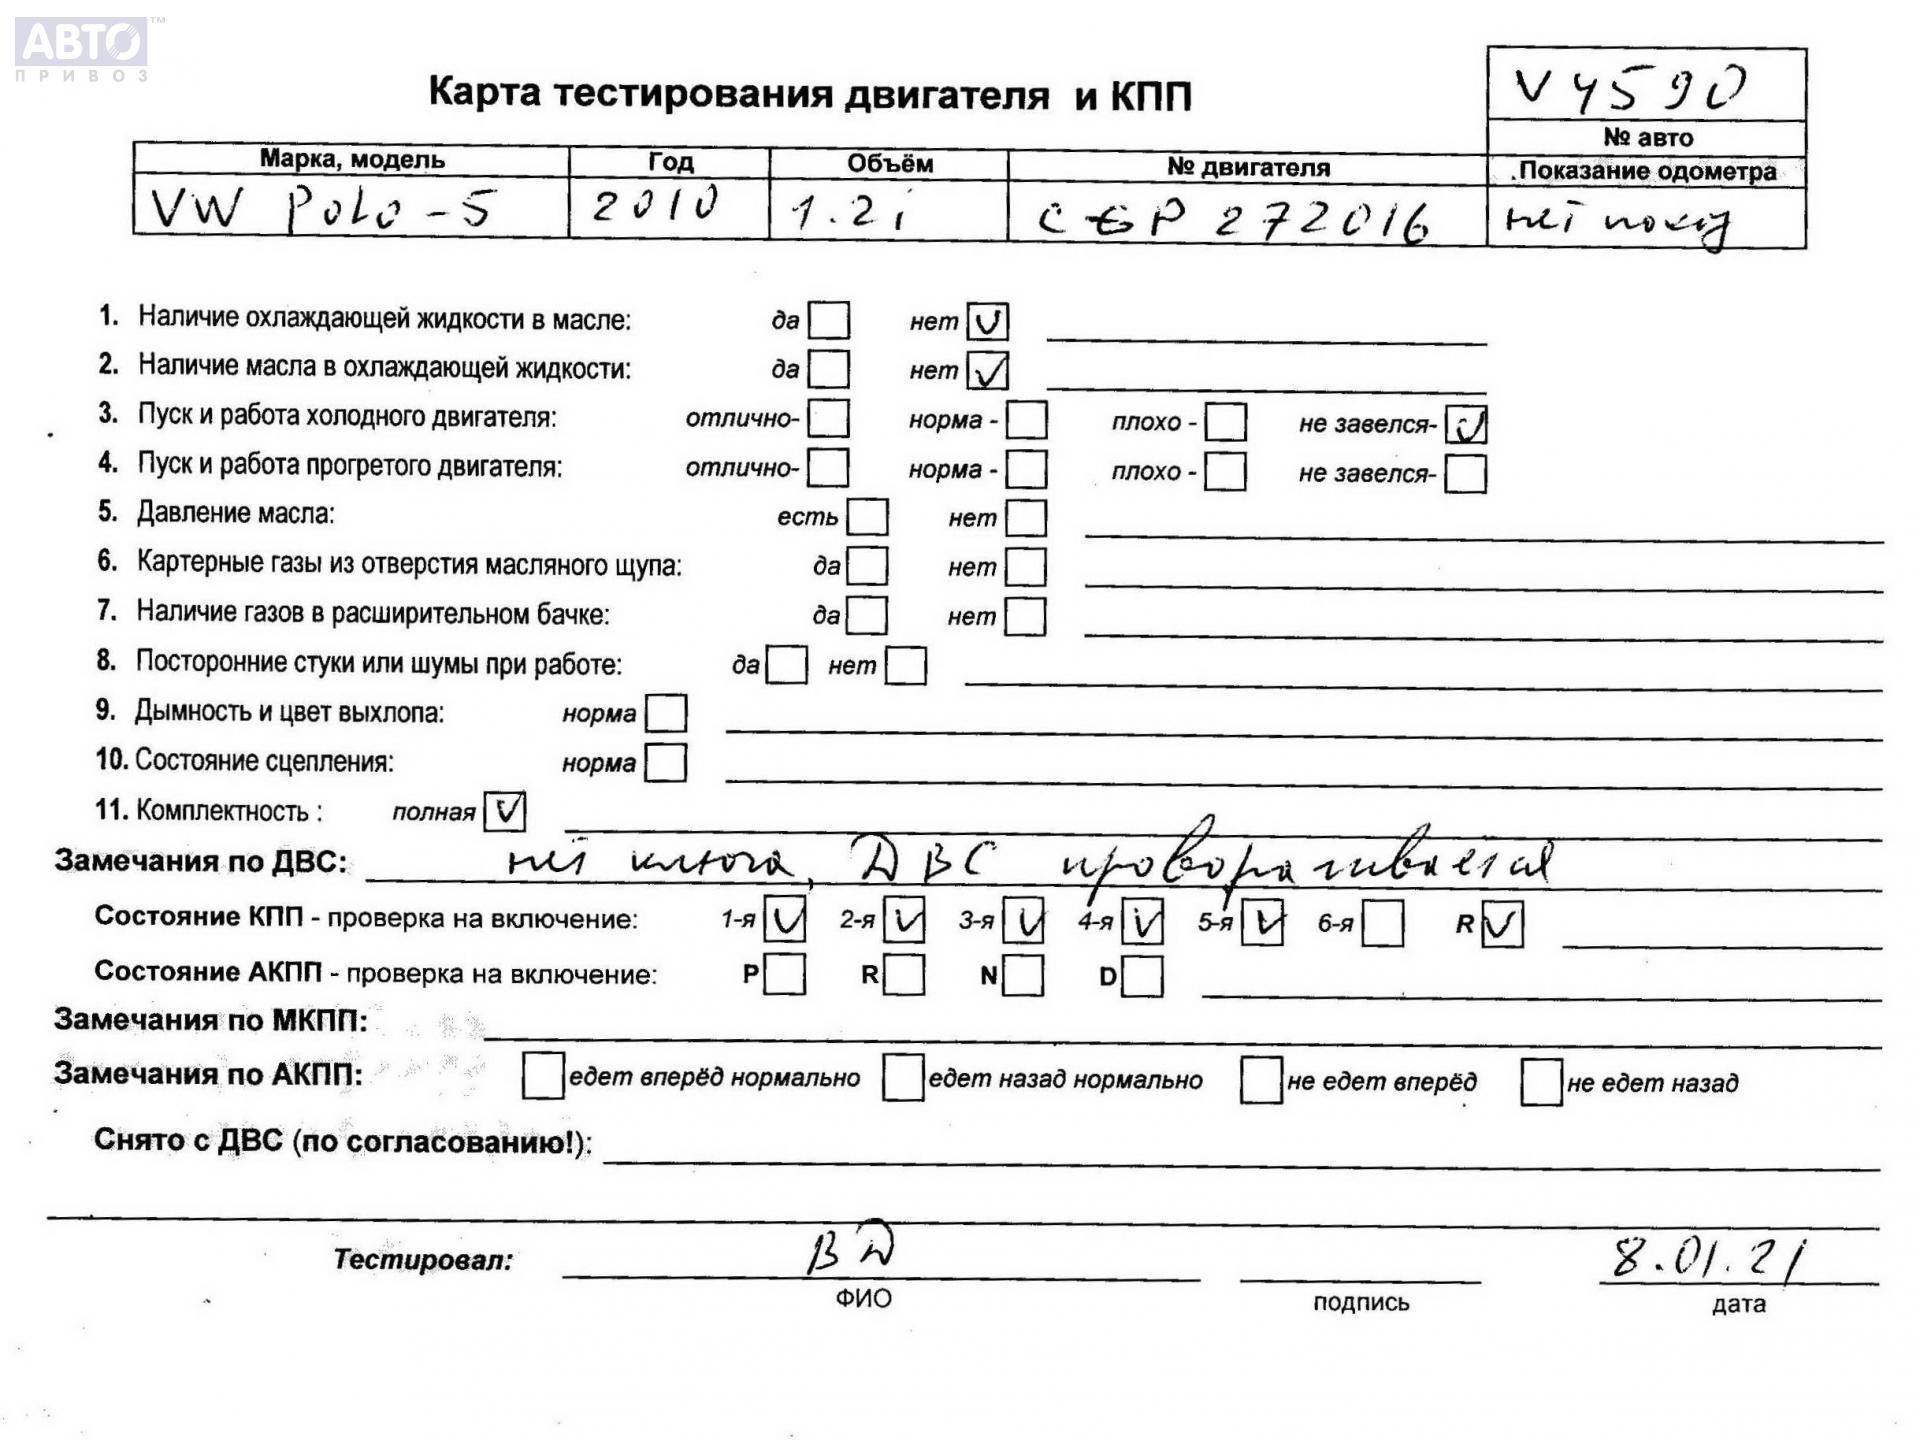 АВТО™
ПРИВОЗ
V4590
Карта тестирования двигателя и КПП
№ авто
Марка, модель Год Объём № двигателя Показание одометра
VW Polo-5 2010 1.2i CGP 272016 нет показ
1. Наличие охлаждающей жидкости в масле: да нет V
2. Наличие масла в охлаждающей жидкости: да нет V
3. Пуск и работа холодного двигателя: отлично- норма - плохо - не завелся- V
4. Пуск и работа прогретого двигателя: отлично- норма - плохо - не завелся-
5. Давление масла: есть нет
6. Картерные газы из отверстия масляного щупа: да нет
7. Наличие газов в расширительном бачке: да нет
8. Посторонние стуки или шумы при работе: да нет
9. Дымность и цвет выхлопа: норма
10. Состояние сцепления: норма
11. Комплектность : полная V
Замечания по ДВС: нет ключа, ДВС проворачивается
Состояние КПП - проверка на включение: 1-я V 2-я V 3-я V 4-я V 5-я V 6-я R V
Состояние АКПП - проверка на включение: P R N D
Замечания по МКПП:
Замечания по АКПП: едет вперёд нормально едет назад нормально не едет вперёд не едет назад
Снято с ДВС (по согласованию!):
Тестировал: ВД 8.01.21
ФИО подпись дата